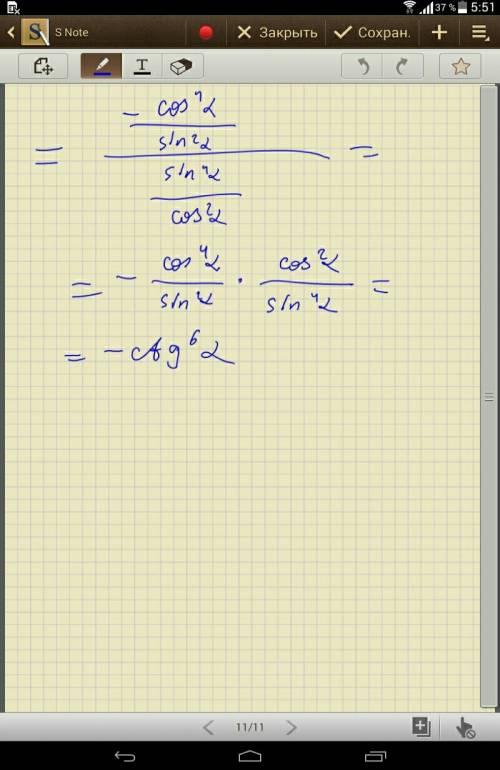 37 % 5:51
S Note Закрыть Сохран.
T
= (- cos⁴α / sin²α) / (sin⁴α / cos²α) =
= - cos⁴α / sin²α · cos²α / sin⁴α =
= - ctg⁶α
11/11